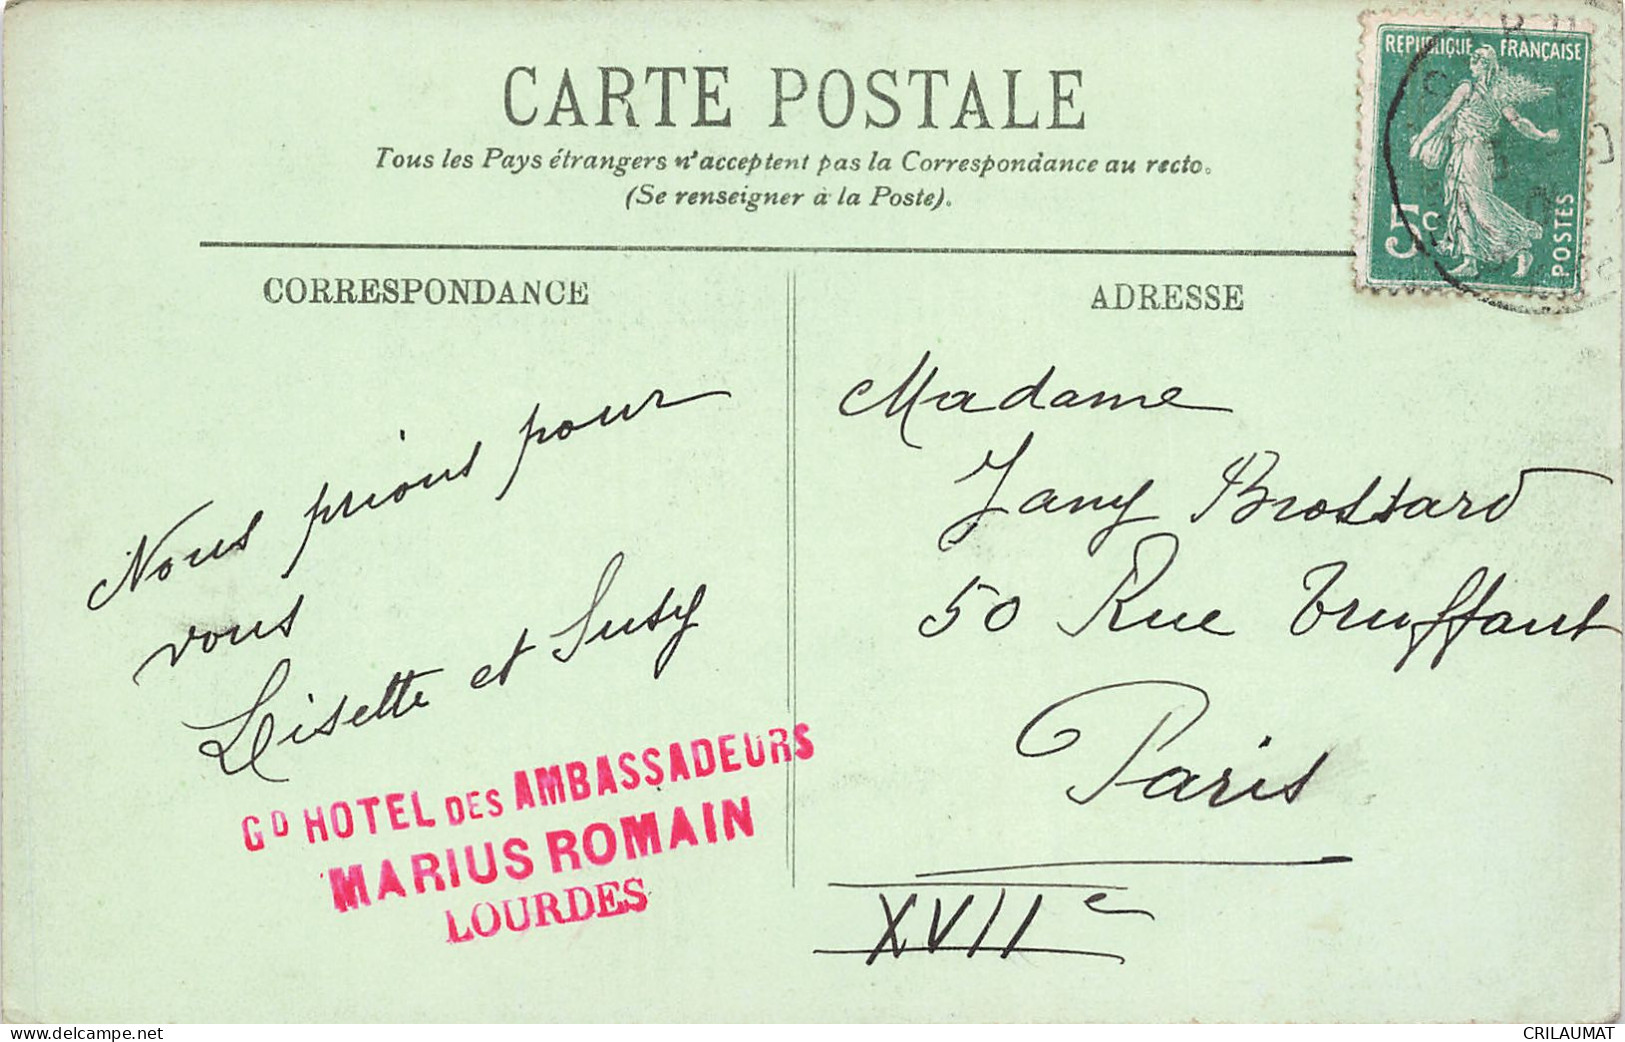 CARTE POSTALE
Tous les Pays étrangers n'acceptent pas la Correspondance au recto.
(Se renseigner à la Poste).
REPUBLIQUE FRANÇAISE
5c
POSTES
CORRESPONDANCE
ADRESSE
Nous prions pour
vous
Lisette et Susy
GD HOTEL DES AMBASSADEURS
MARIUS ROMAIN
LOURDES
Madame
Jany Brossard
50 Rue Truffaut
Paris
XVIIe
www.delcampe.net
CRILAUMAT